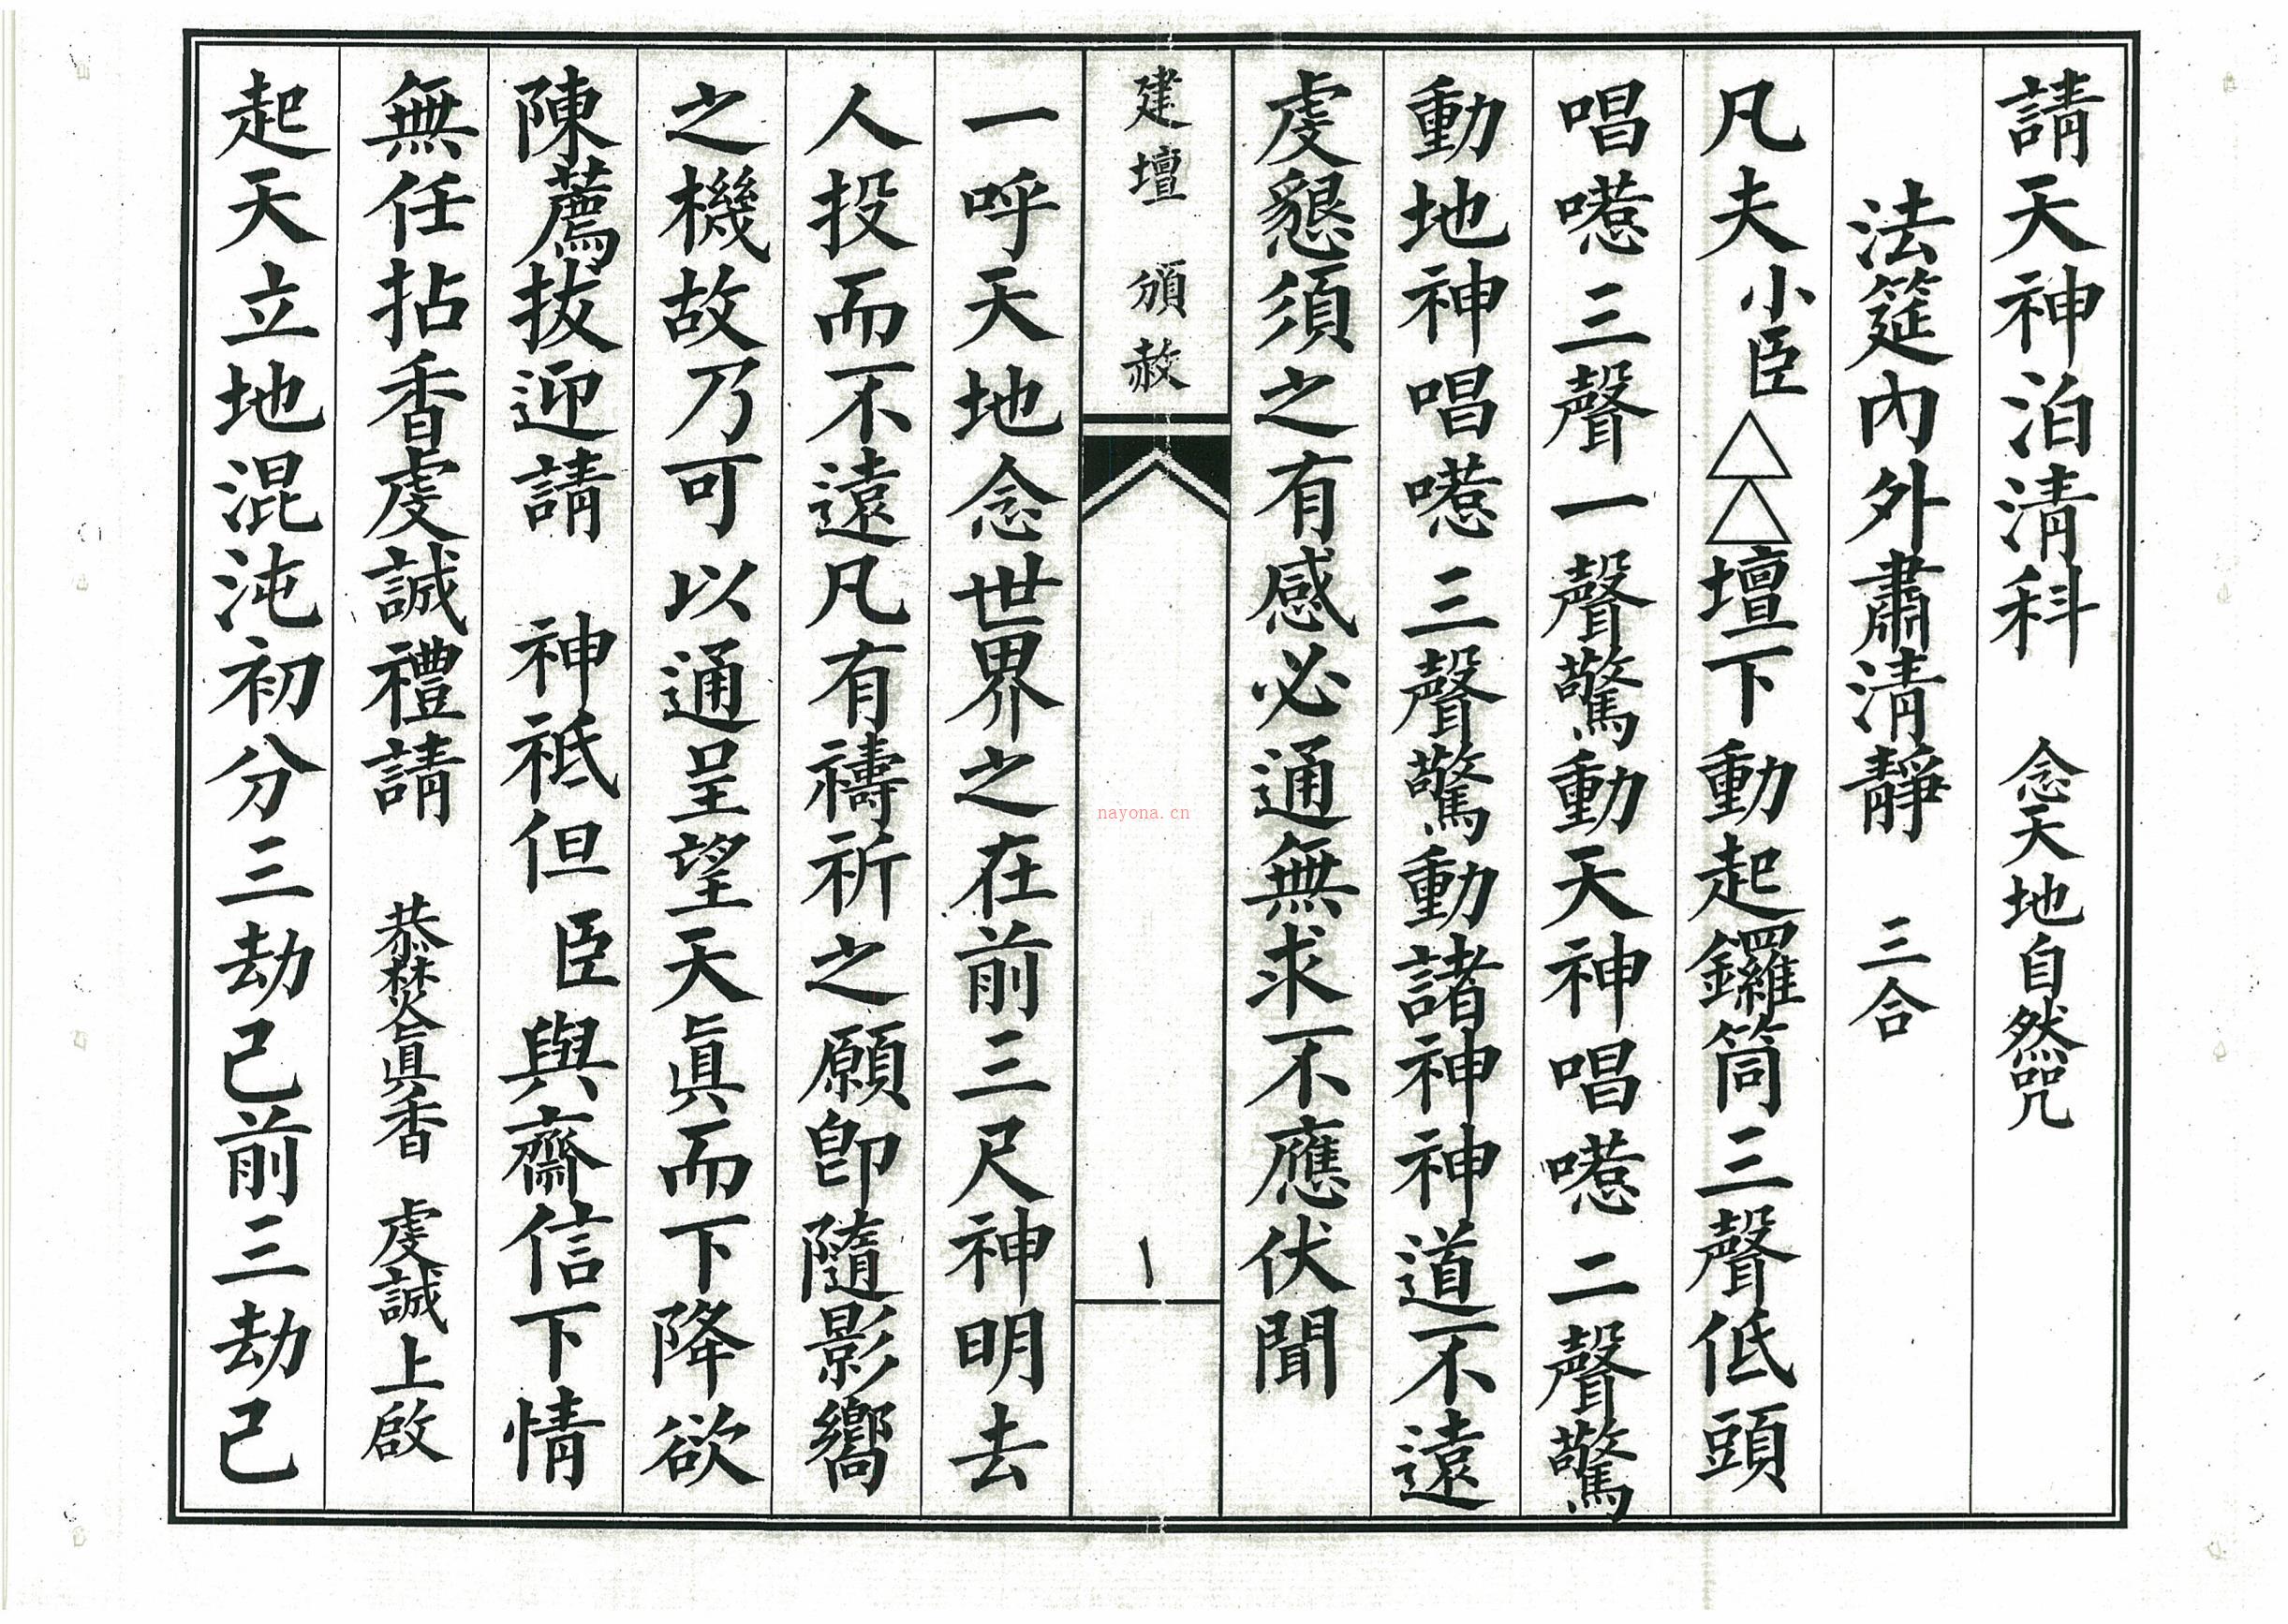 請天神泊清科 念天地自然咒
法筵內外肅清靜 三合
凡夫小臣△△壇下動起鑼筒三聲低頭
唱三聲一聲驚動天神唱二聲驚
動地神唱三聲驚動諸神神道不遠
虔懇須之有感必通無求不應伏聞
建壇 頒赦
一
nayona.cn
一呼天地念世界之在前三尺神明去
人投而不遠凡有禱祈之願卽隨影嚮
之機故乃可以通呈望天眞而下降欲
陳薦拔迎請 神祇但臣與齋信下情
無任拈香虔誠禮請 恭焚眞香 虔誠上啟
起天立地混沌初分三劫己前三劫己